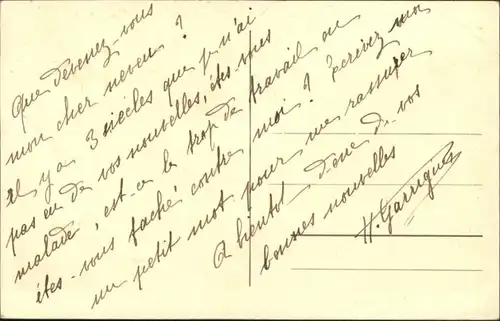 Que devenez vous
mon cher neveu ?
il y a 3 siècles que je n'ai
pas eu de vos nouvelles, êtes-vous
malade, est-ce le trop de travail ou
êtes-vous faché contre moi ? Ecrivez moi
un petit mot pour me rassurer
A bientôt donc de vos
bonnes nouvelles
H. Garrigues